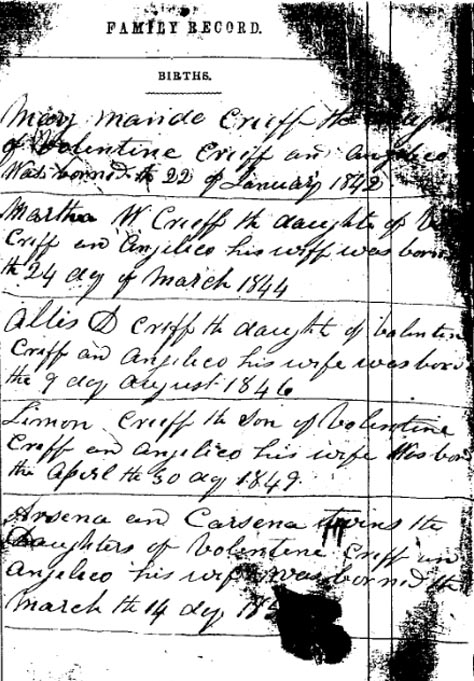 FAMILY RECORD.
BIRTHS.
Mary Crieff the
of Volentine Crieff an Angelico
Was borned th 22 of January 1842
Martha W Crieff th daughte of
Crieff an Angelico his wiff was born
th 24 dey of March 1844
Allis D Crieff th daught of Valentin
Crieff an Angelico his wife was bor
the 9 dey August 1846
Limon Crieff th Son of Volentine
Crieff an Angelico his wife Was bor
the April th 30 dey 1849.
Arsena an Carsena twins the
Daughters of Volentine Crieff an
Angelico his wife was borned th
March th 14 dey